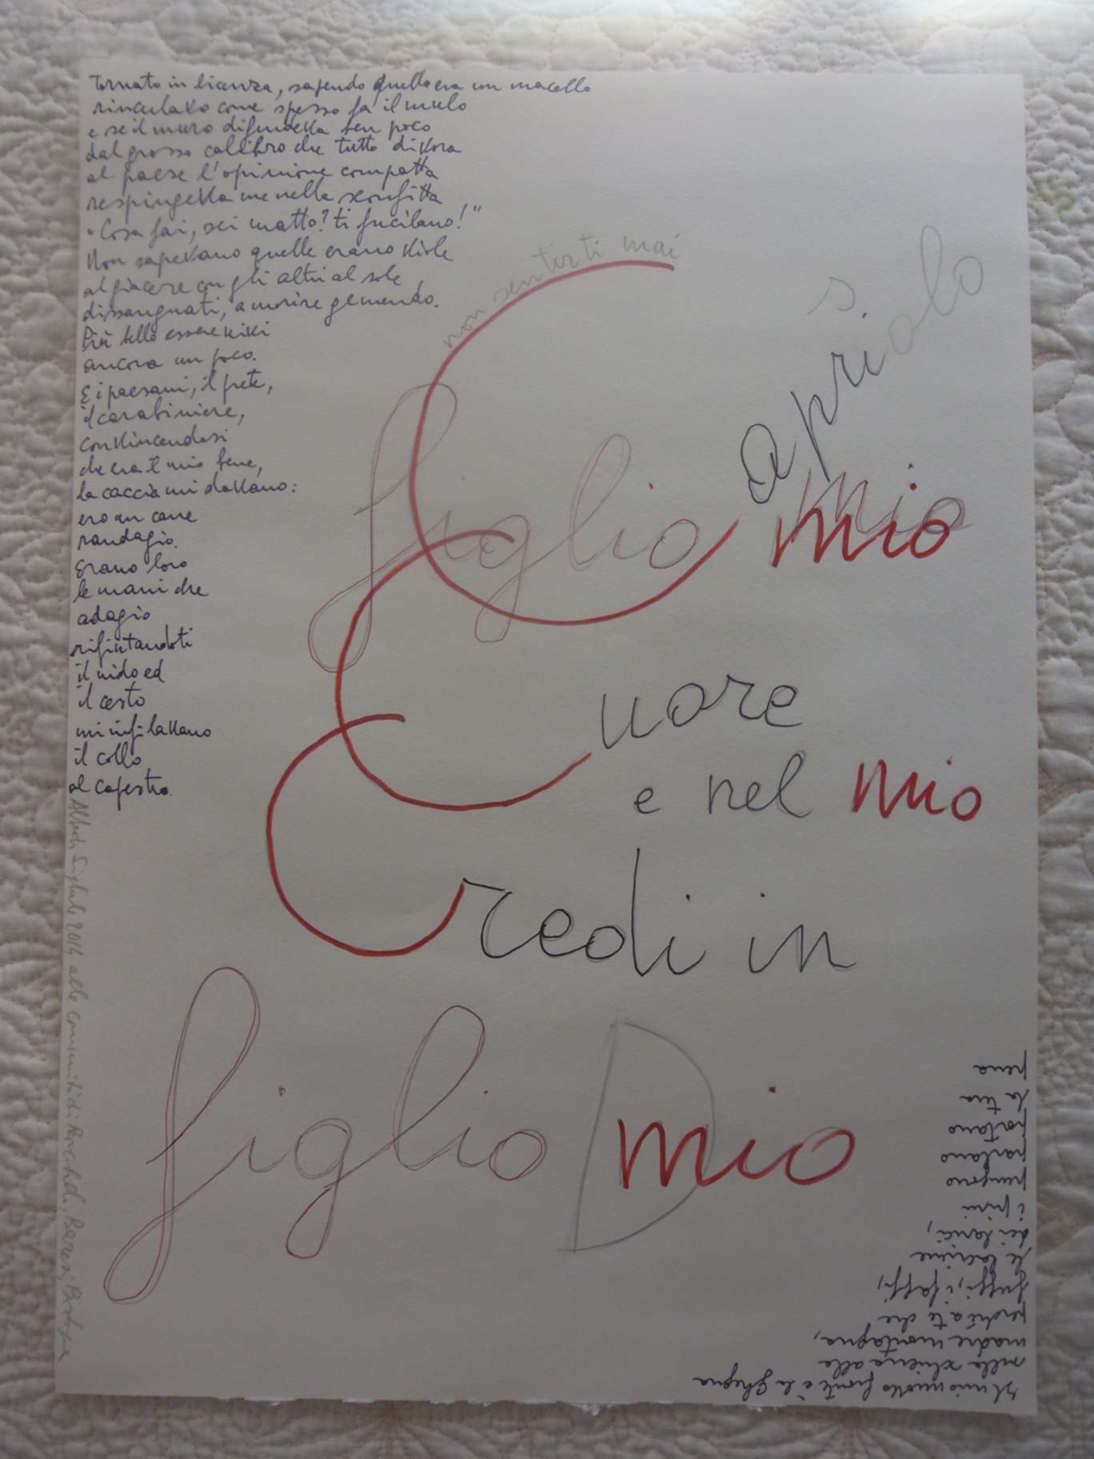 Tornato in licenza, sapendo quello era un macello
rinculavo come spesso fa il mulo
e se il muro difendeva ben poco
dal grosso calibro che tutto divora
al paese l'opinione compatta
respingeva me nella sconfitta
"Cosa fai, sei matto? ti fucilano!"
Non sapevano quelle erano viole
al giacere con gli altri al sole
dissanguati, a morire gemendo.
Più bello essere vivi
ancora un poco.
E i paesani, il prete,
il carabiniere,
convincendosi
che era 'l mio bene,
la caccia mi davano:
ero un cane
randagio.
Erano loro
le mani che
adagio
rifiutandoti
il nido ed
il cesto
mi infilavano
il collo
al capestro.
non sentirti mai
s.
apriolo
figlio mio mio
Cuore
e nel mio
Credi in
figlio D mio
2016 alla comunità di
Il mio nuovo fronte è la
nella schiena alla
madre montagna,
perché a te che
fuggi, i faggi,
le lacrime
dei larici,
i pini
pungono
parlano
portano
la tua
pena